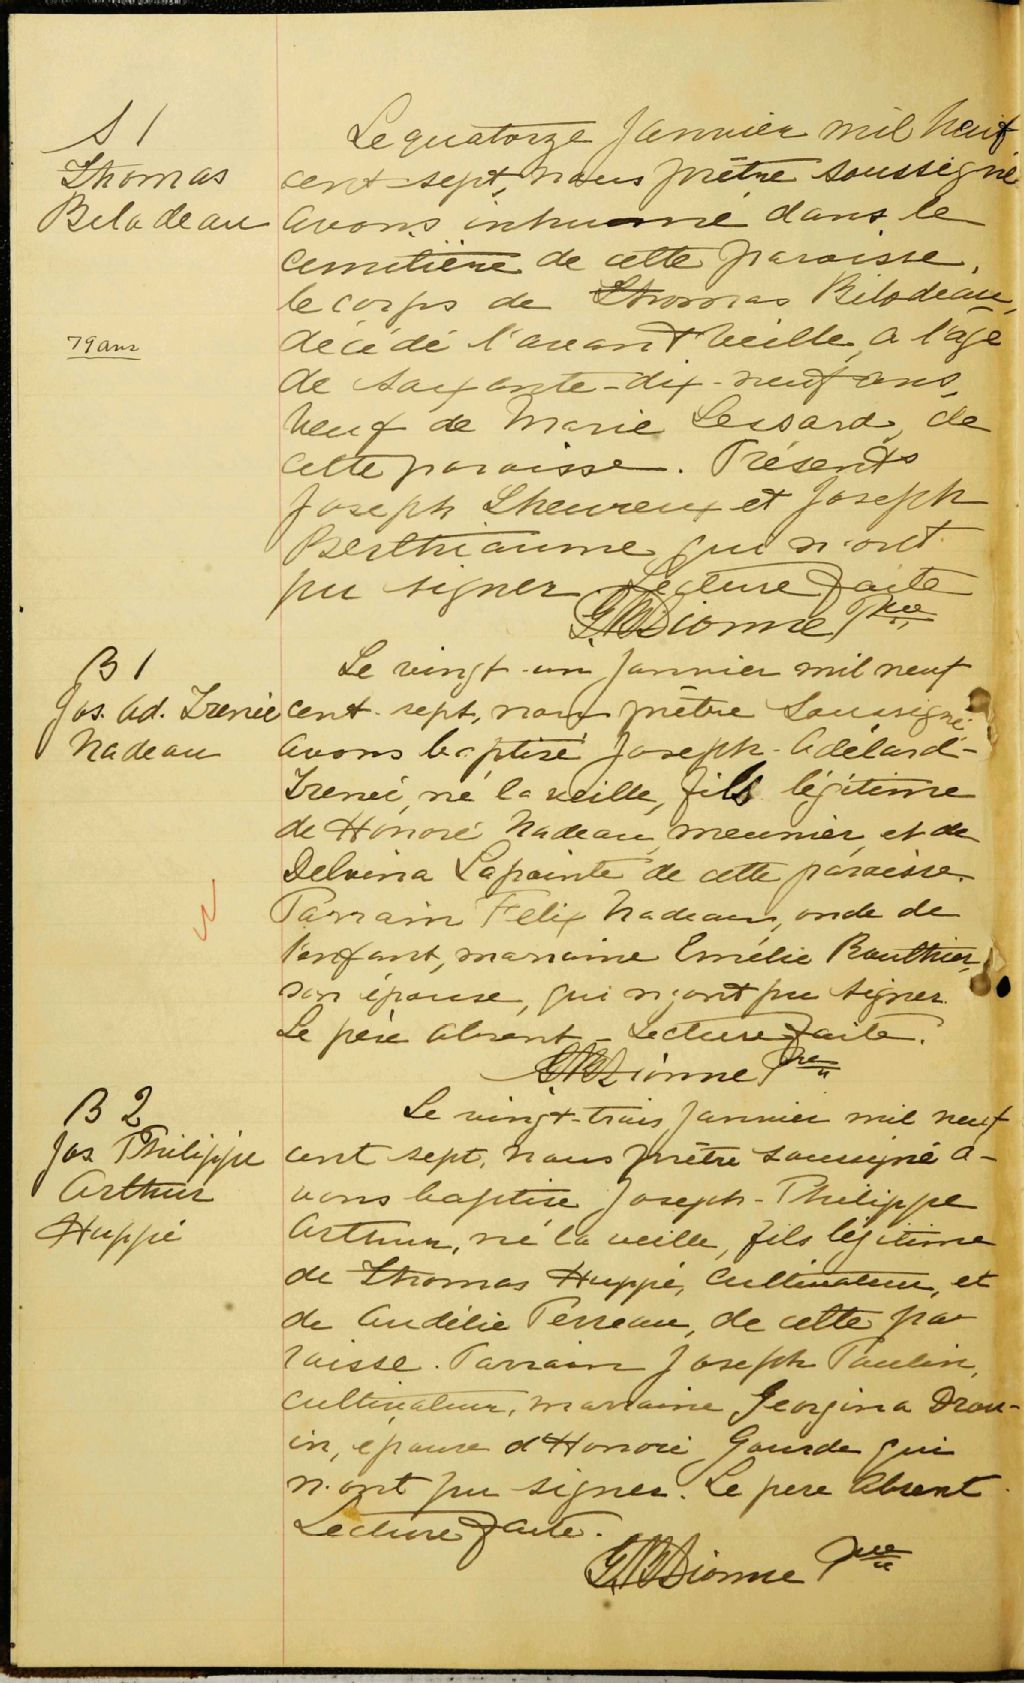 S 1
Thomas
Bilodeau
79 ans
Le quatorze Janvier mil neuf
cent-sept, nous prêtre soussigné
avons inhumé dans le
cimetière de cette paroisse,
le corps de Thomas Bilodeau,
décédé l'avant veille, a l'age
de soixante-dix-neuf ans,
veuf de Marie Lessard, de
cette paroisse. Présents
Joseph Lheureux et Joseph
Berthiaume qui n'ont
pu signer. Lecture faite
Dionne Ptre
B 1
Jos. Ad. Irenée
Nadeau
Le vingt-un Janvier mil neuf
cent-sept, nous prêtre soussigné
avons baptisé Joseph-Adélard-
Irenée, né la veille, fils légitime
de Honoré Nadeau, meunier, et de
Delvina Lapointe de cette paroisse.
Parrain Felix Nadeau, oncle de
l'enfant, marraine Emélie Routhier,
son épouse, qui n'ont pu signer.
Le père absent. Lecture faite.
Dionne Ptre
B 2
Jos Philippe
Arthur
Huppé
Le vingt-trois Janvier mil neuf
cent sept, nous prêtre soussigné a-
vons baptisé Joseph-Philippe
Arthur, né la veille, fils légitime
de Thomas Huppé, cultivateur, et
de Audélie Perreau, de cette pa-
roisse. Parrain Joseph Paulin,
cultivateur, marraine Georgina Drou-
in, épouse d'Honoré Gourde qui
n'ont pu signer. Le pere absent.
Lecture faite.
Dionne Ptre